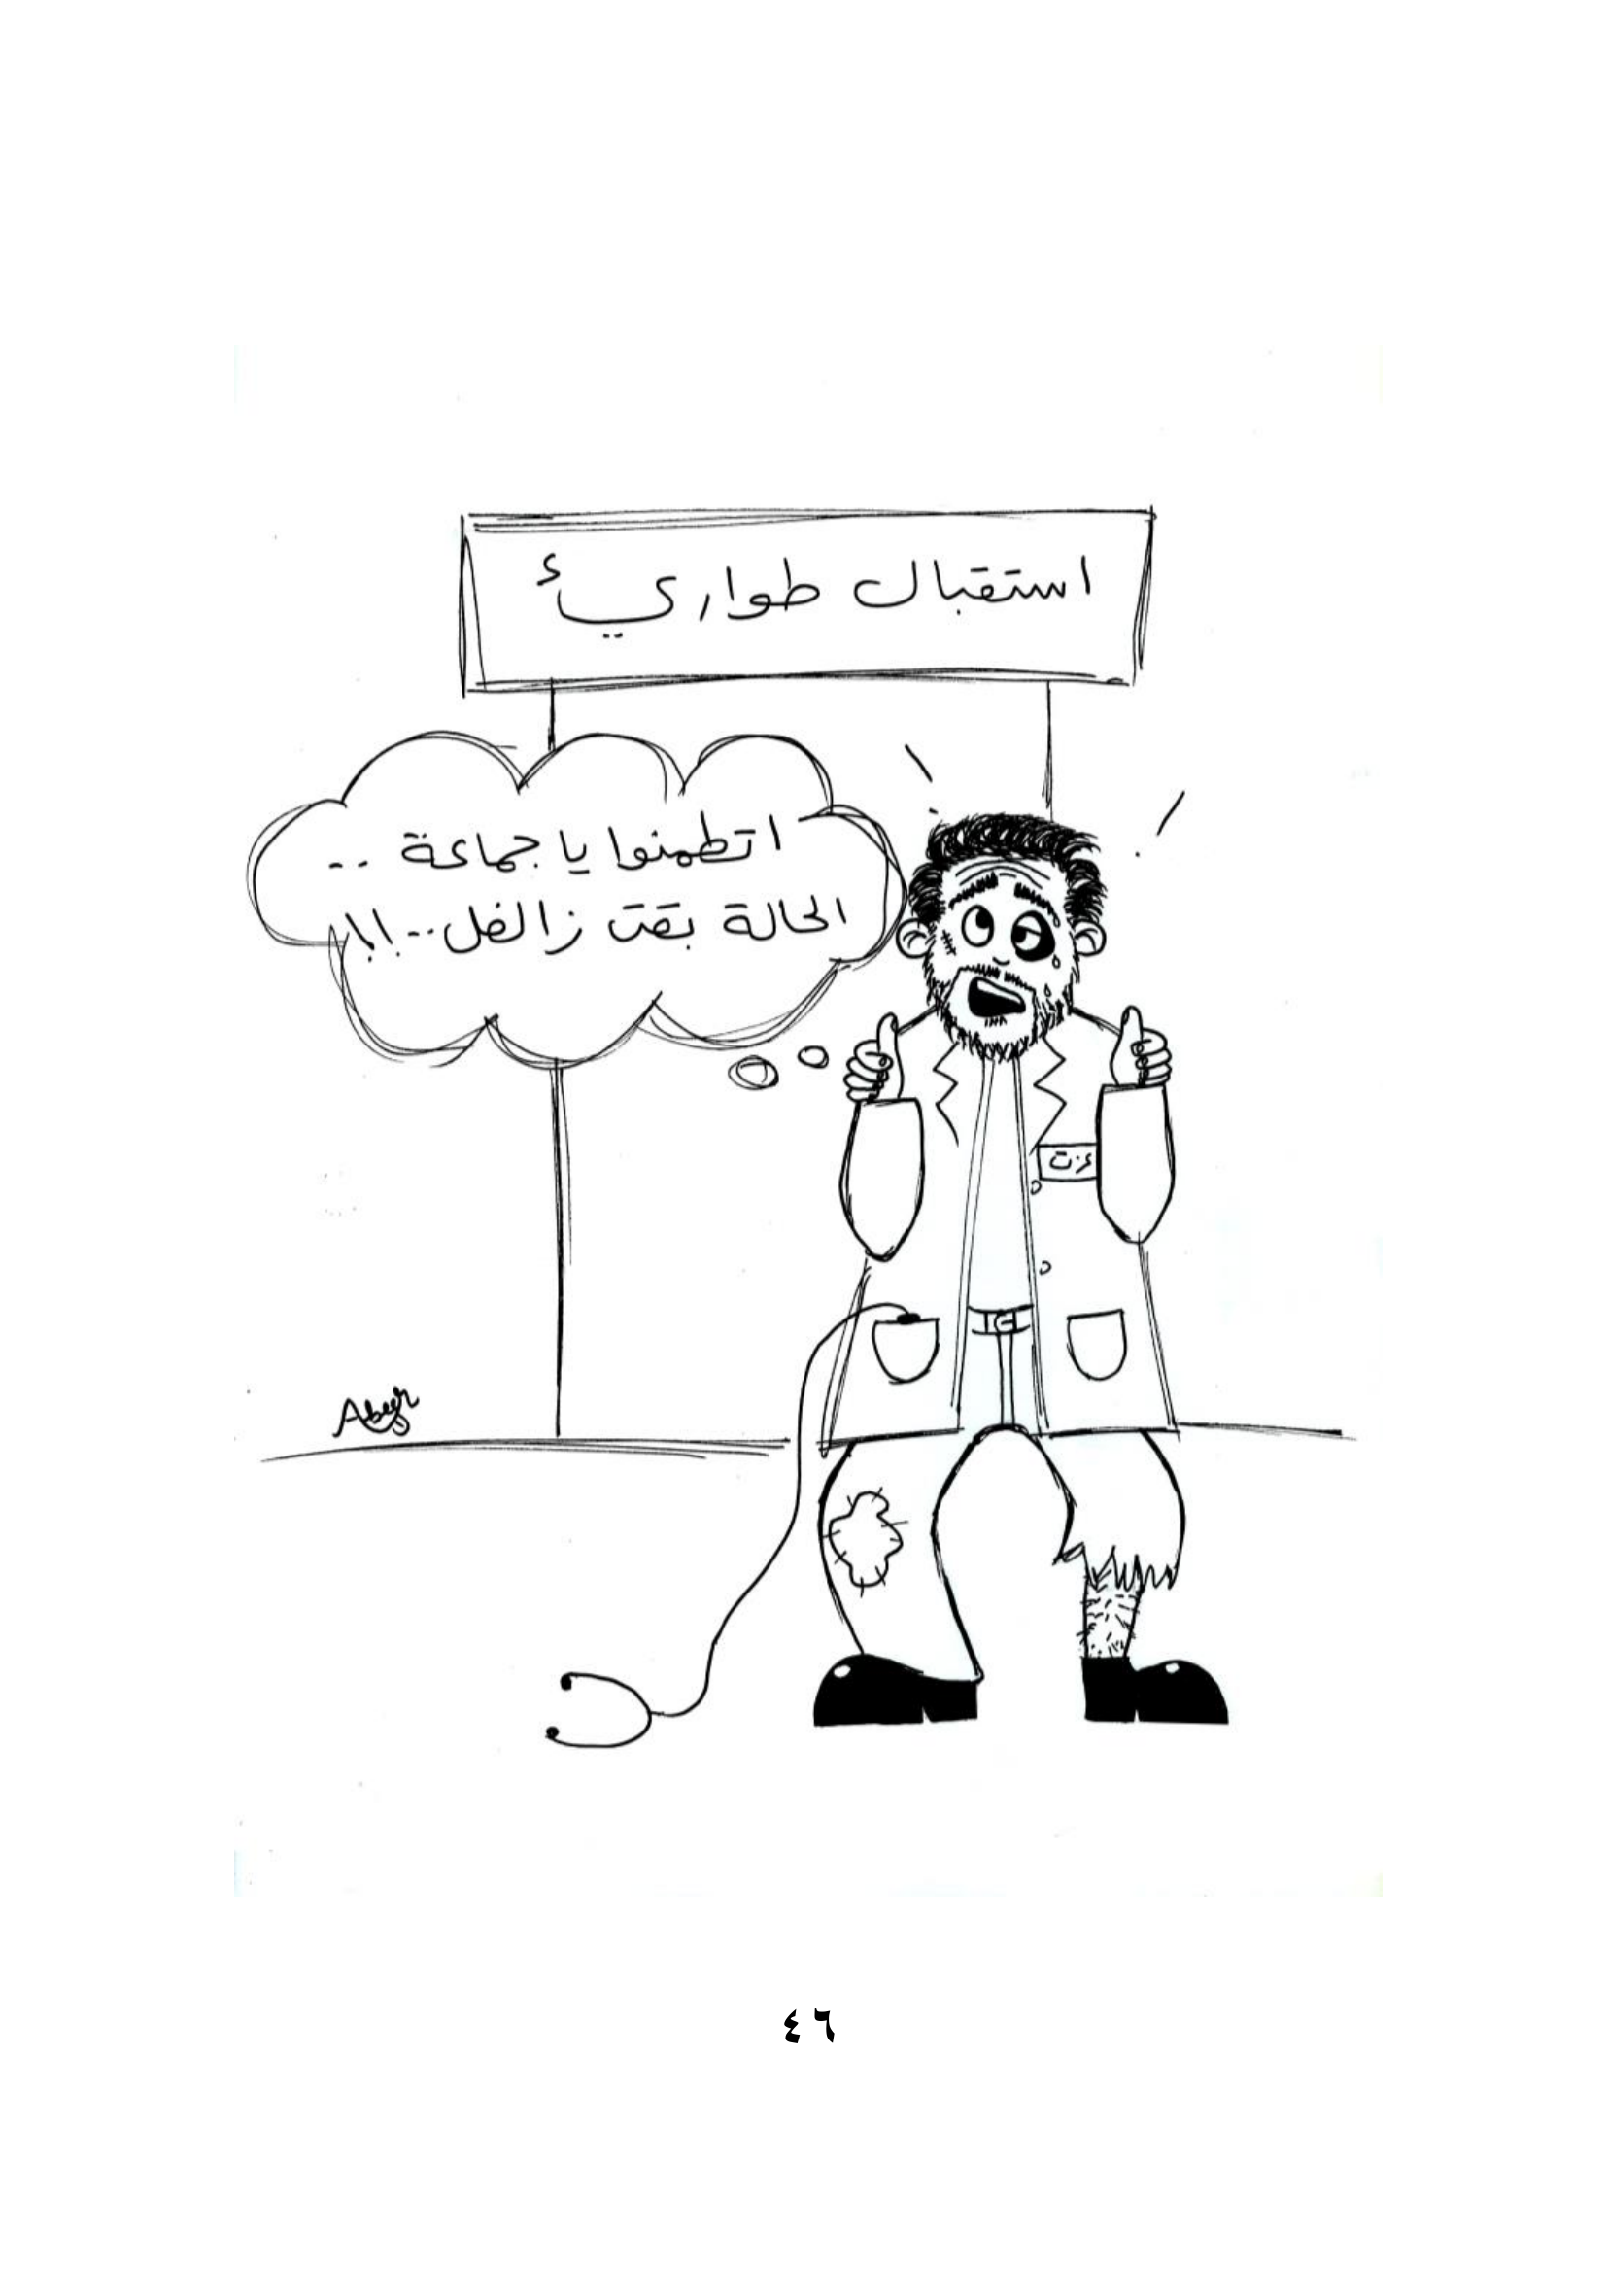 استقبال طواريئ
اتطمنوا يا جماعة ..
الحالة بقت زالفل..!!
عزت
Abyr
٤٦